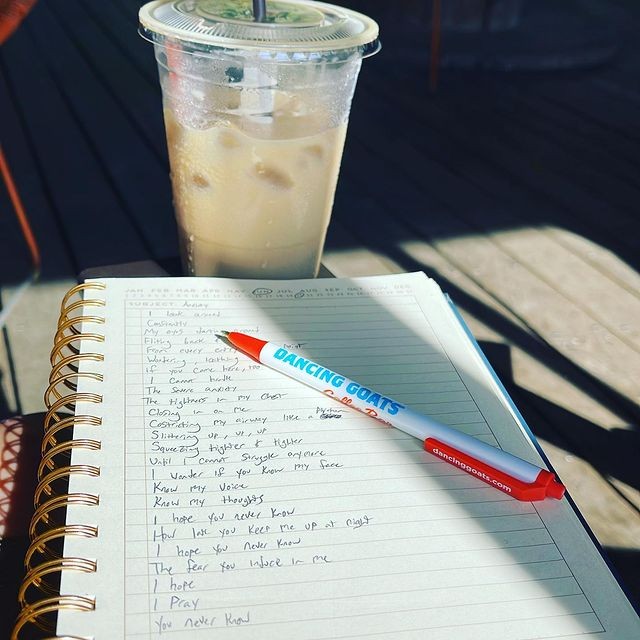 JAN FEB MAR APR MAY JUN JUL AUG SEP OCT NOV DEC
SUBJECT
I look around
Constantly
My eyes
Flitting back
From every entry point
Watching, waiting
If you came here, too
I cannot handle
The severe anxiety
The tightness in my chest
Closing in on me
Constricting my airway like a python
Slithering up, up, up
Squeezing tighter & tighter
Until I cannot struggle anymore
I wonder if you know my face
Know my voice
Know my thoughts
I hope you never know
How late you keep me up at night
I hope you never know
The fear you induce in me
I hope
I pray
You never know
DANCING GOATS
dancinggoats.com